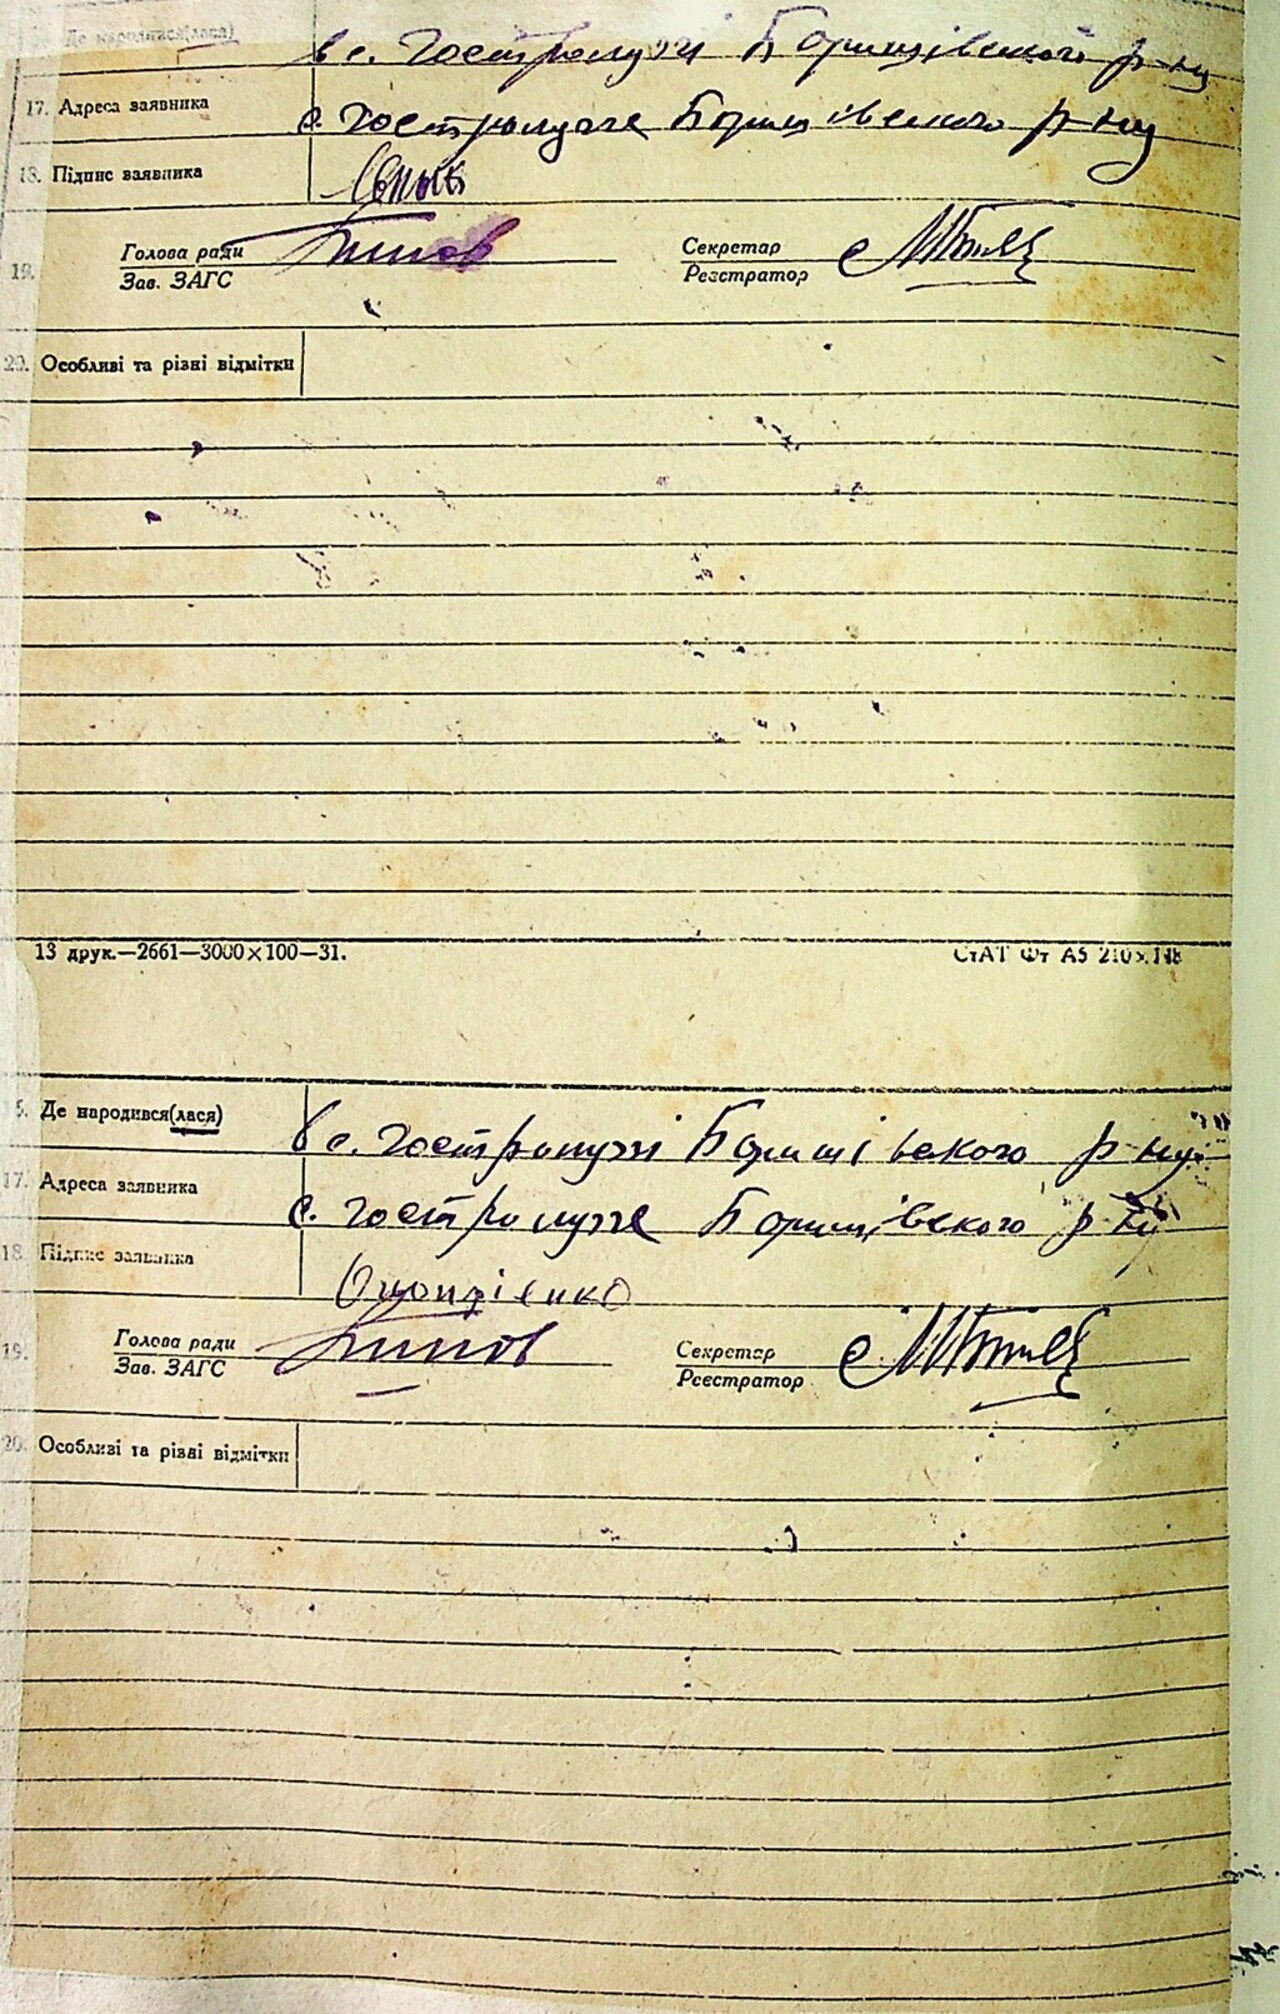 Де народився(лася)
в с. Гостролуччі Боришівського р-ну
17. Адреса заявника
с. Гостролучче Боришівського р-ну
18. Підпис заявника
19. Голова ради
Зав. ЗАГС
Секретар
Реєстратор
20. Особливі та різні відмітки
13 друк.—2661—3000×100—31.
СтАТ Фт А5 210×148
Де народився(лася)
в с. Гостролуччі Боришівського р-ну
17. Адреса заявника
с. Гостролучче Боришівського р-ну
18. Підпис заявника
19. Голова ради
Зав. ЗАГС
Секретар
Реєстратор
20. Особливі та різні відмітки